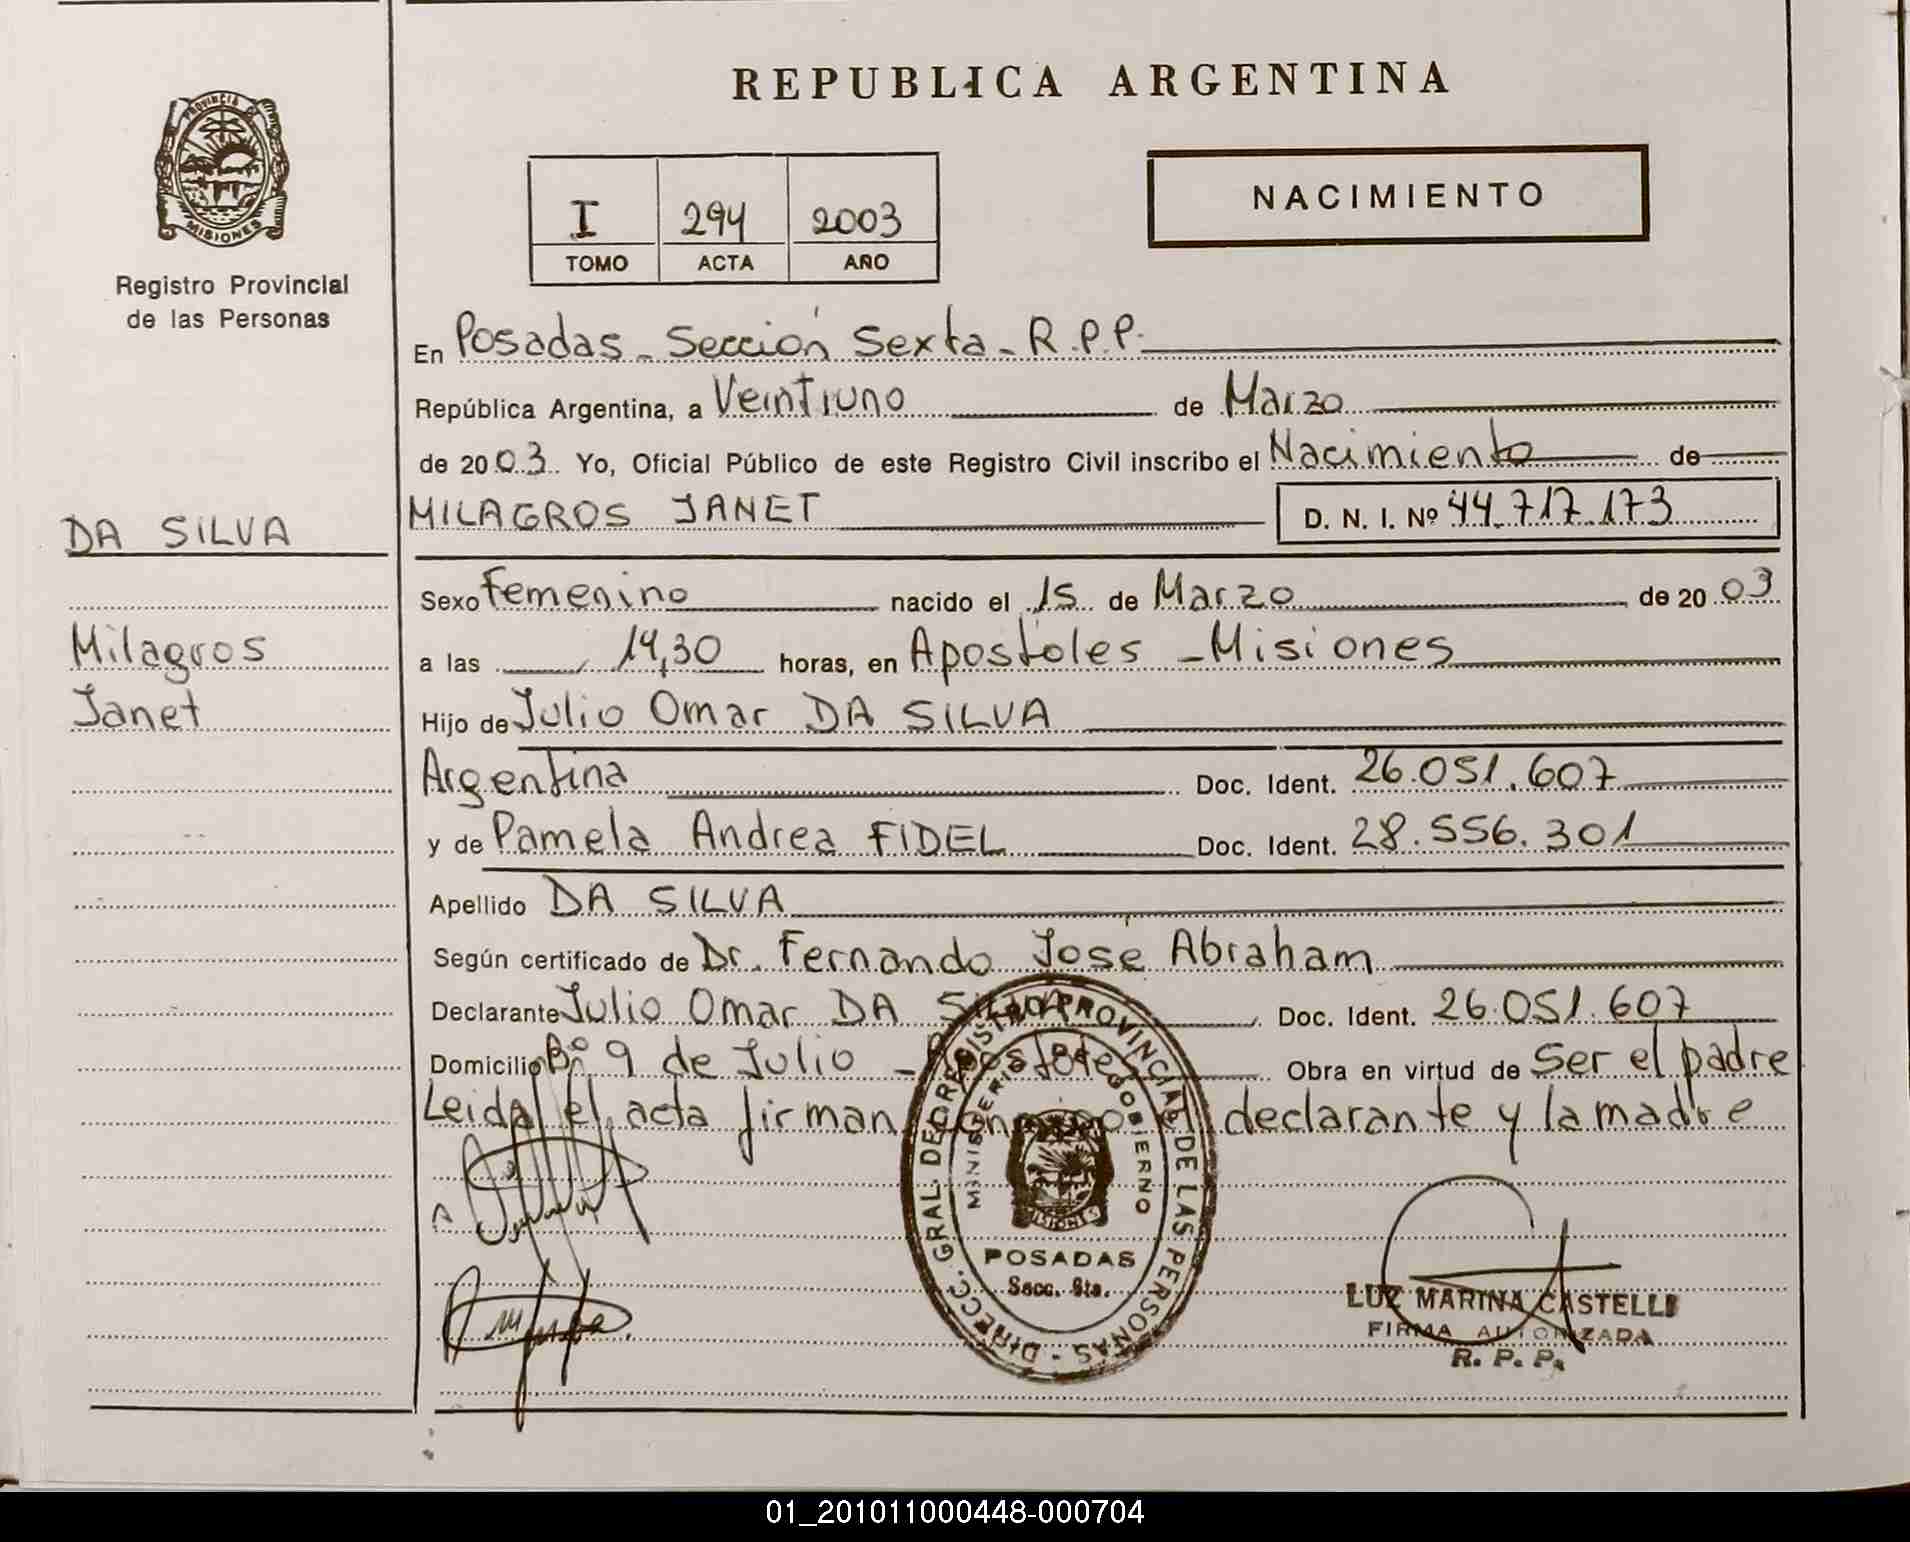 REPUBLICA ARGENTINA
PROVINCIA DE MISIONES
Registro Provincial
de las Personas
I 294 2003
TOMO ACTA AÑO
NACIMIENTO
DA SILVA
Milagros
Janet
En Posadas - Sección Sexta - R.P.P.
República Argentina, a Veintiuno de Marzo
de 2003 Yo, Oficial Público de este Registro Civil inscribo el Nacimiento de
MILAGROS JANET D. N. I. Nº 44.717.173
Sexo Femenino nacido el 15 de Marzo de 2003
a las 14,30 horas, en Apostoles - Misiones
Hijo de Julio Omar DA SILVA
Argentina Doc. Ident. 26.051.607
y de Pamela Andrea FIDEL Doc. Ident. 28.556.301
Apellido DA SILVA
Según certificado de Dr. Fernando José Abraham
Declarante Julio Omar DA SILVA Doc. Ident. 26.051.607
Domicilio Bº 9 de Julio - Apostoles Obra en virtud de Ser el padre
Leida el acta firman conmigo el declarante y la madre
DIRECC. GRAL. DE REGISTRO PROVINCIAL DE LAS PERSONAS -
MINISTERIO GOBIERNO
MISIONES
POSADAS
Secc. 6ta.
LUZ MARINA CASTELLI
FIRMA AUTORIZADA
R. P. P.
01_201011000448-000704